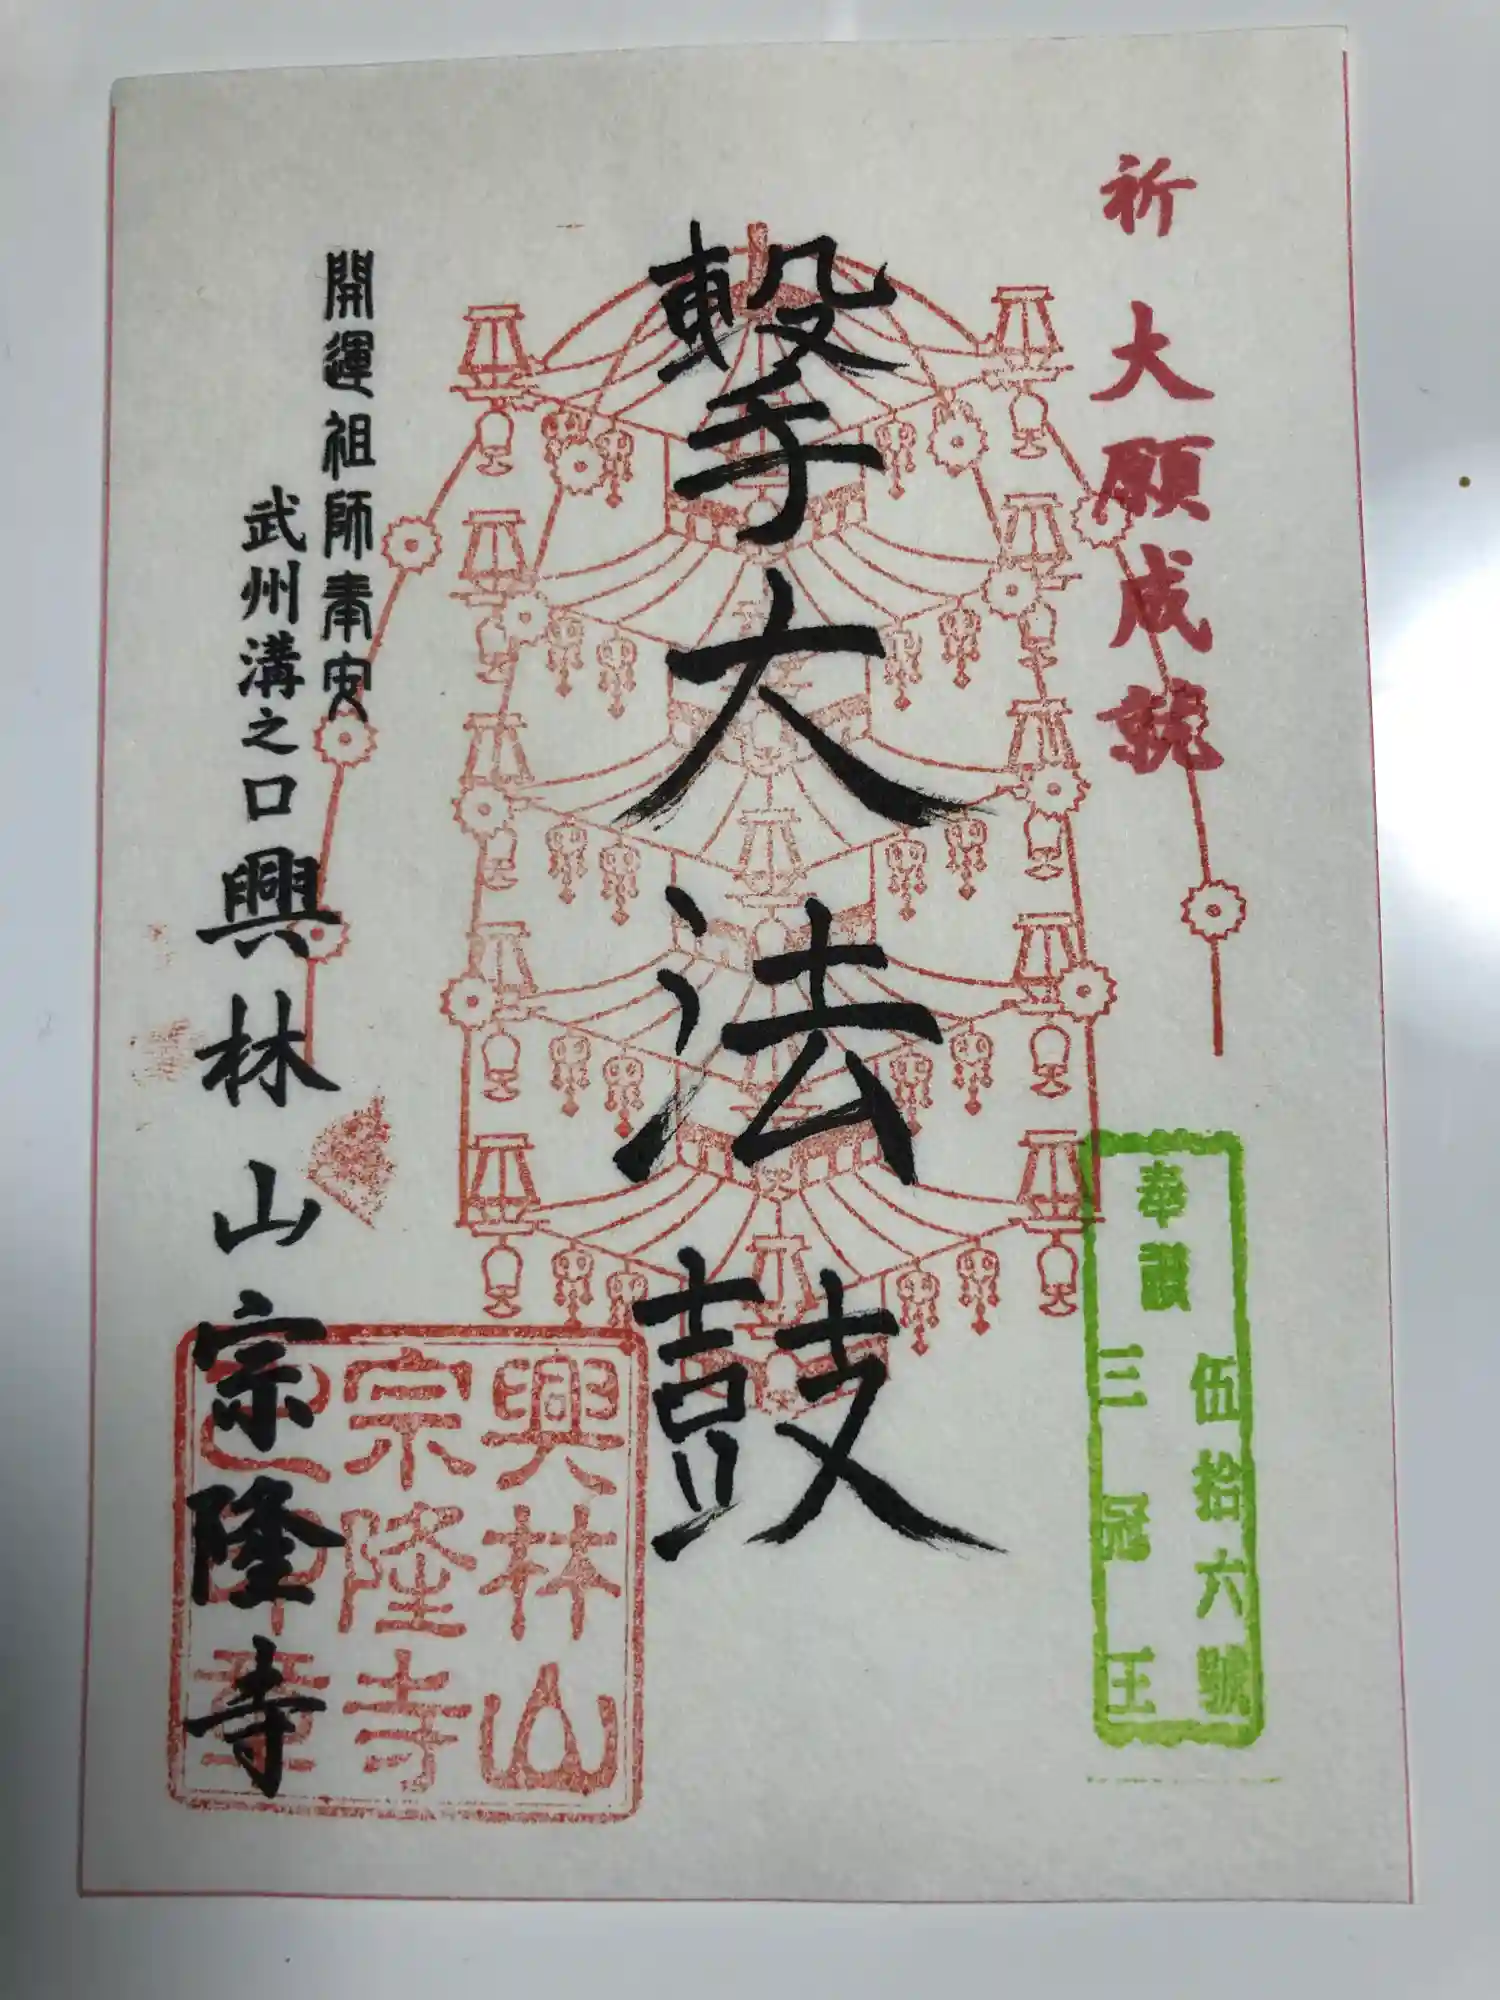 祈 大願成就
奉讃
伍拾六號
三冠王
撃大法鼓
開運祖師奉安
武州溝之口 興林山 宗隆寺
興林山
宗隆寺
之印章